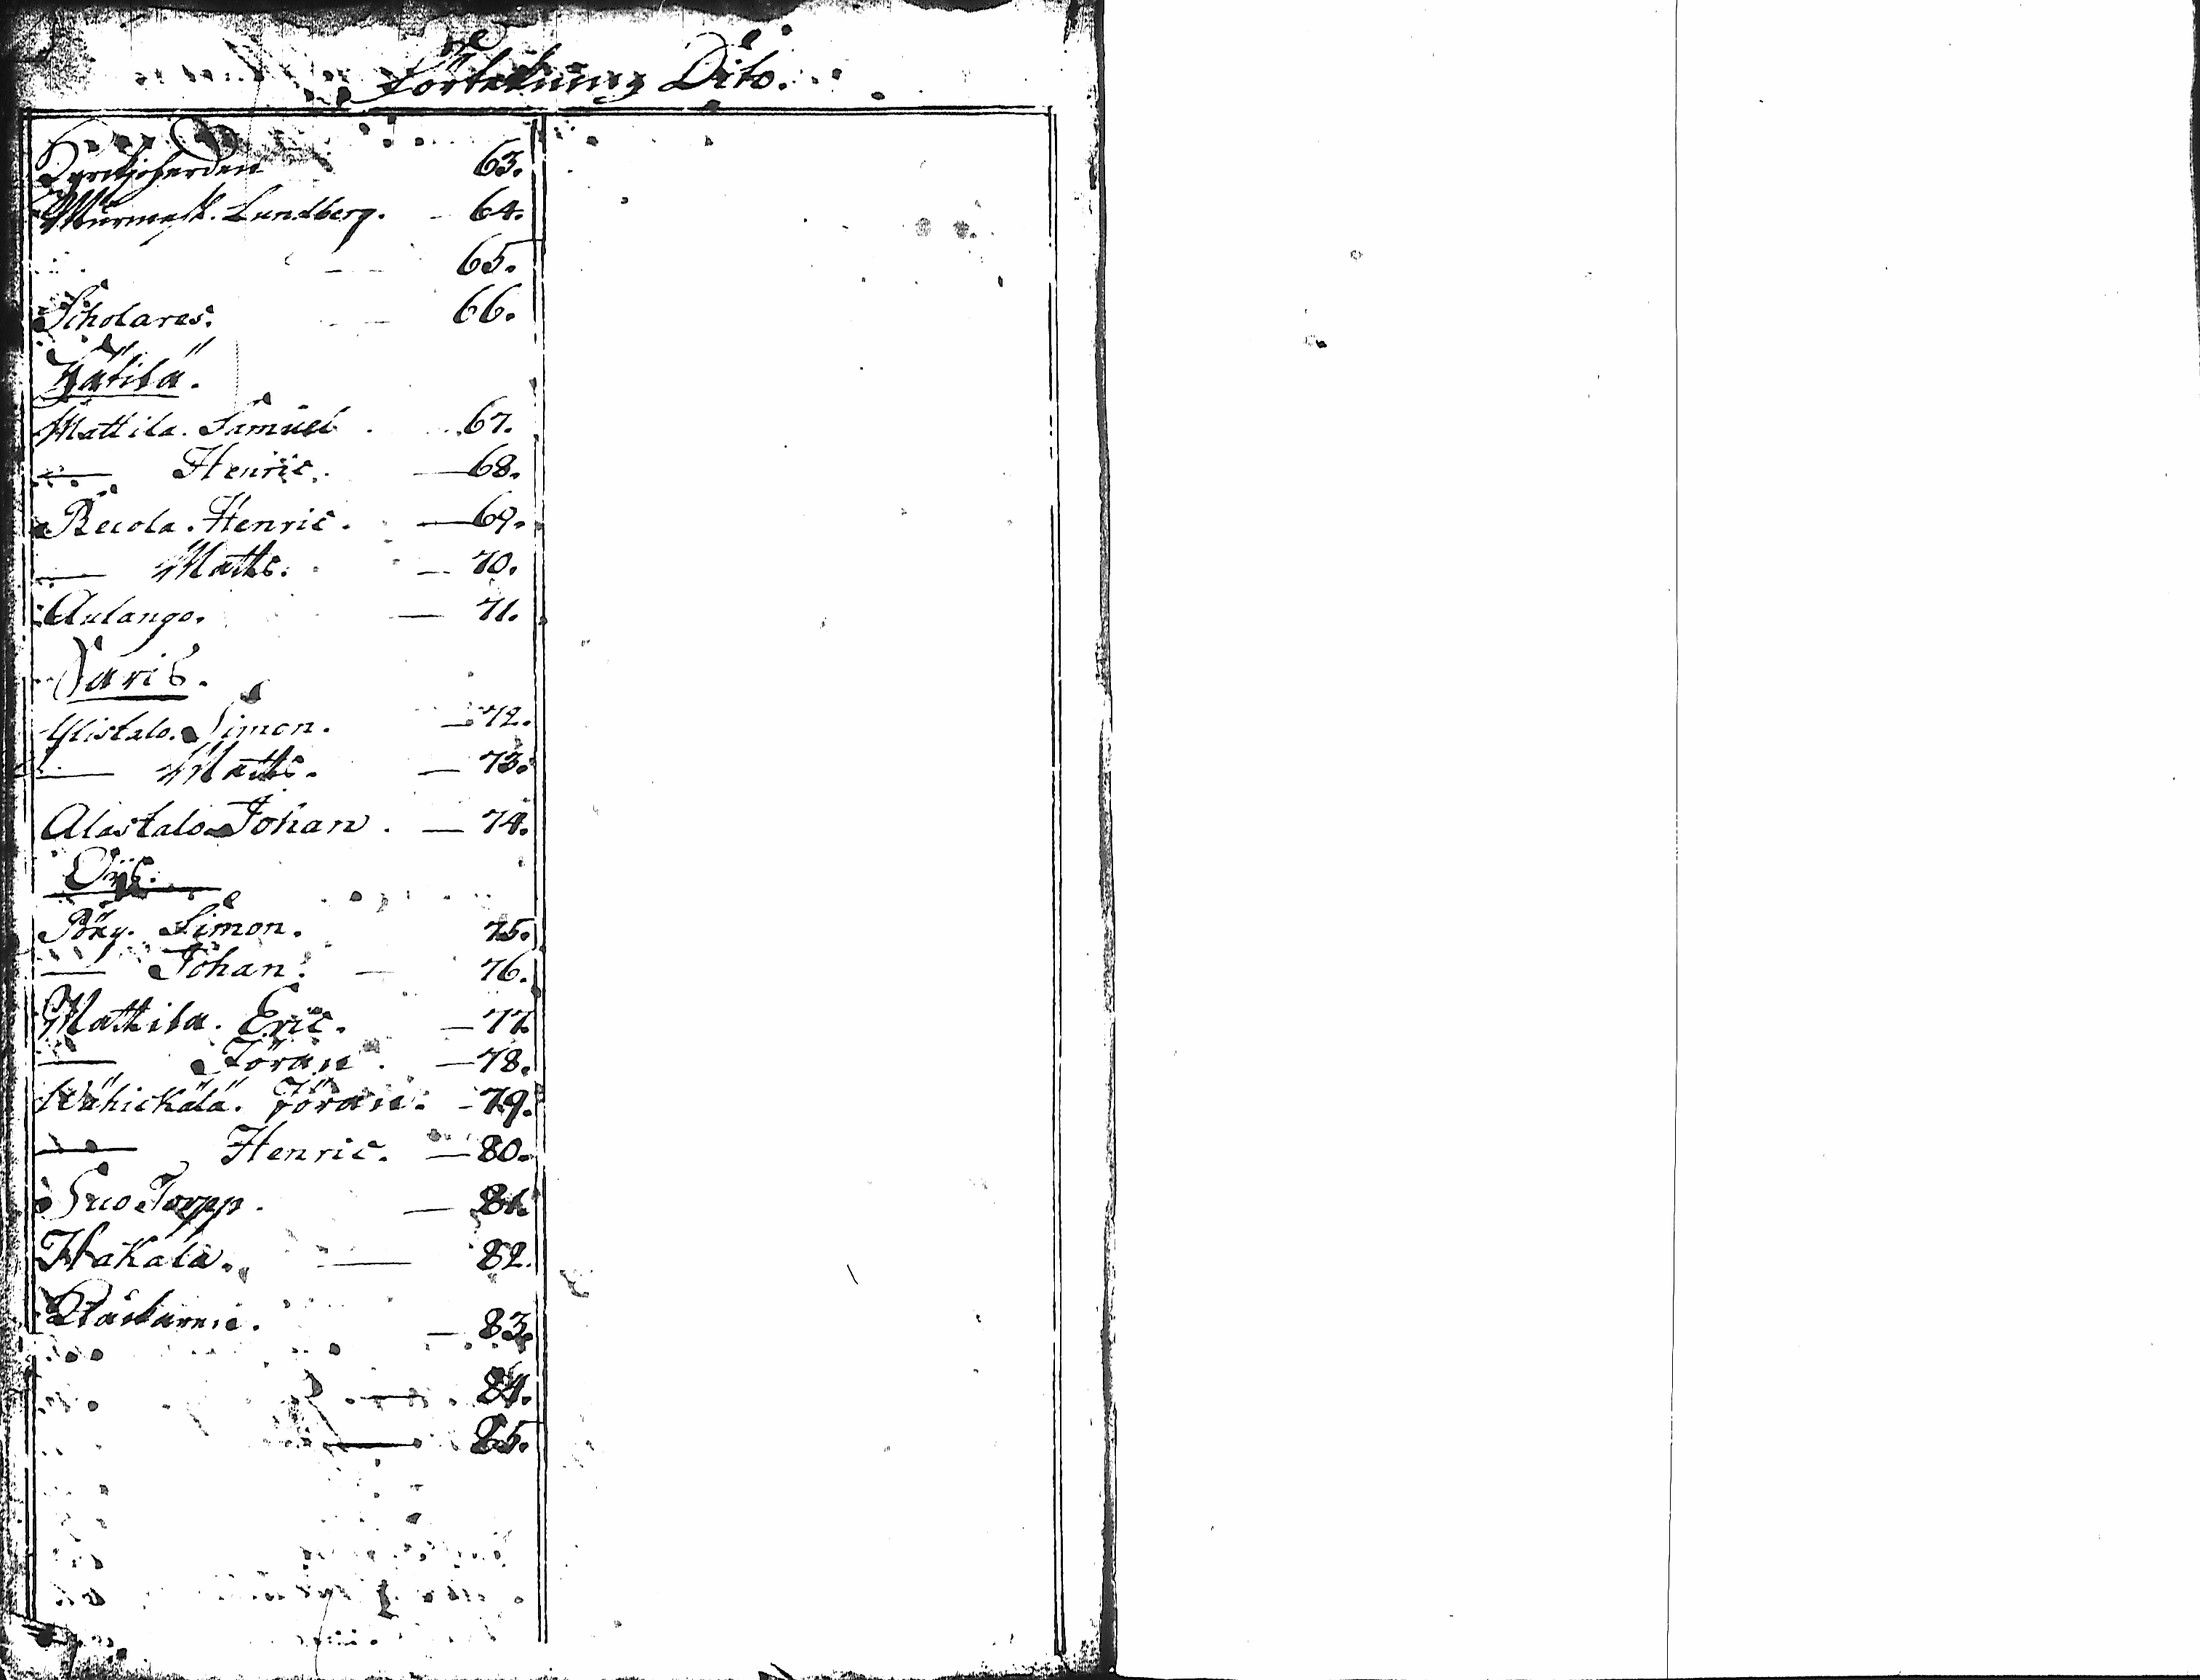 Förtekning Dito.
Kyrckjoherden 63.
Mürmest. Lundberg. - 64.
— — 65.
Scholares. — — 66.
Kätilä.
Mattila. Samuel. 67.
— Henric. — 68.
Recola. Henric. — 69.
— Matts. — 70.
Aulango. — 71.
Saris.
Ylistalo. Simon. — 72.
— Matts. — 73.
Alastalo Johan. — 74.
Pöky. Simon. 75.
— Johan. — 76.
Mattila. Eric. — 77.
— Jöran. — 78.
Wähickälä. Jöran. - 79.
— Henric. — 80.
Suo Torpp. — 81.
Hakala. — 82.
— 83.
— 84.
— 85.